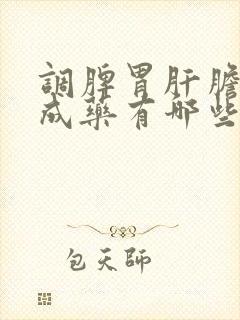 調脾胃肝膽
成藥有哪些
包天師